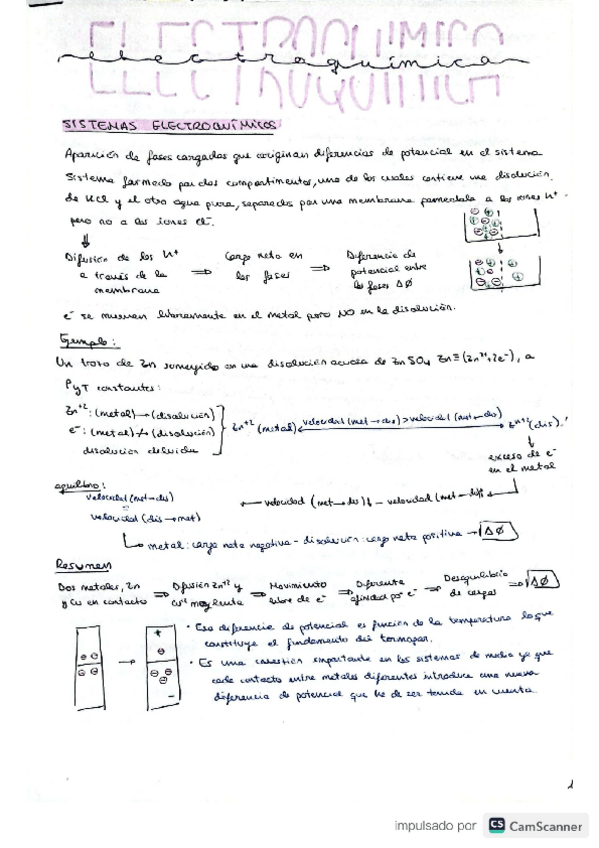 ELECTROQUIMICA
electroquímica
SISTEMAS ELECTROQUÍMICOS:
Aparición de fases cargadas que originan diferencias de potencial en el sistema
Sistema formado por dos compartimentos, uno de los cuales contiene una disolución
de KCl y el otro agua pura, separados por una membrana permeable a los iones K+
pero no a los iones Cl-.
Difusión de los K+ a través de la membrana ⇒ Carga neta en las fases ⇒ Diferencia de potencial entre las fases ΔΦ
e- se mueven libremente en el metal pero NO en la disolución.
Ejemplo:
Un trozo de Zn sumergido en una disolución acuosa de ZnSO4 Zn≡(Zn2+, 2e-), a
P y T constantes:
Zn+2: (metal) → (disolución)
e-: (metal) ↛ (disolución)
disolución diluida
Zn+2 (metal) velocidad (met→dis) > velocidad (met→dis) Zn+2 (dis).
exceso de e-
en el metal
equilibrio:
velocidad (met→dis)
=
velocidad (dis→met)
velocidad (met→dis) ↓ - velocidad (met-diff
metal: carga neta negativa - disolución: carga neta positiva → ΔΦ
Resumen
Dos metales, Zn y Cu en contacto ⇒ Difusión Zn+2 y Cu+2 muy lenta ⇒ Movimiento libre de e- ⇒ Diferente afinidad por e- ⇒ Desequilibrio de cargas ⇒ ΔΦ
• Esa diferencia de potencial es función de la temperatura lo que
constituye el fundamento del termopar.
• Es una cuestión importante en los sistemas de medida ya que
cada contacto entre metales diferentes introduce una nueva
diferencia de potencial que ha de ser tenida en cuenta
1
impulsado por CS CamScanner